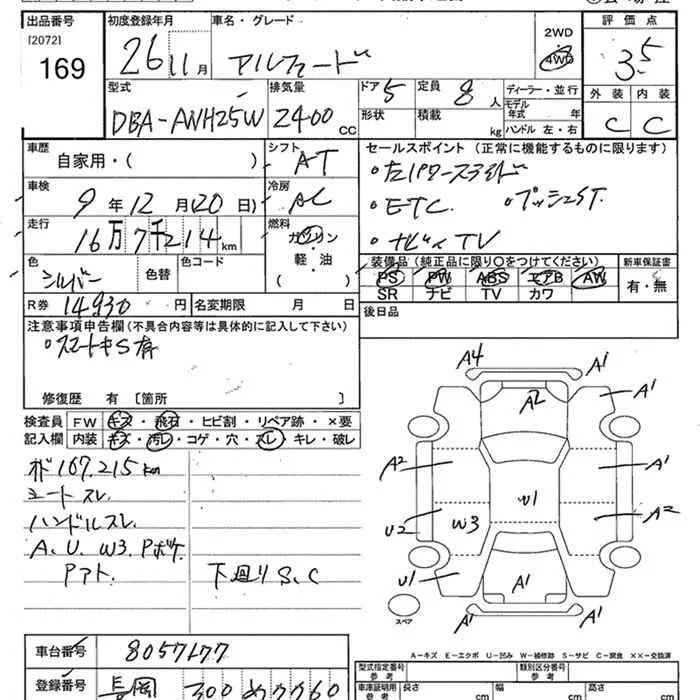 出品番号 初度登録年月 車名・グレード 2WD 評価点
[2072] 26 11月 アルファード 4WD 3.5
169
型式 排気量 ドア 5 定員 8人 ディーラー・並行 外装 内装
DBA-ANH25W 2400cc 形状 積載 kg モデル年式 年 C C
ハンドル 左・右
車歴 シフト セールスポイント (正常に機能するものに限ります)
自家用・( ) AT ・左パワースライド
車検 冷房 ・ETC ・プッシュST.
9年12月(20日) AC ・ナビ TV
走行 燃料
16万7千214km ガソリン・軽・油 ( )
色 色替 色コード 装備品 (純正品に限り○をつけてください) 新車保証書
シルバー PS PW ABS エアB AW 有・無
SR ナビ TV カワ
R券 14930円 名変期限 月 日 後日品
注意事項申告欄 (不具合内容等は具体的に記入して下さい)
・スマートキーS有
修復歴 有 [箇所 ]
検査員 FW キズ・飛石・ヒビ割・リペア跡・×要
記入欄 内装 キズ・汚レ・コゲ・穴・スレ・キレ・破レ
167,215km
シートスレ.
ハンドルスレ.
A. U. W3. Pボケ.
Pアト. 下廻りS.C
A4 A1
A2 A1
A2 A1
W1
U2 W3 A2
U1 A1
A1 A1
スペア
A-キズ E-エクボ U-凹み W-補修跡 S-サビ C-腐食 ××-交換済
車台番号 8057177
登録番号 長岡 300 め 7760
型式指定番号 参考 類別区分番号 参考
車庫証明用 参考 長さ cm 幅 cm 高さ cm